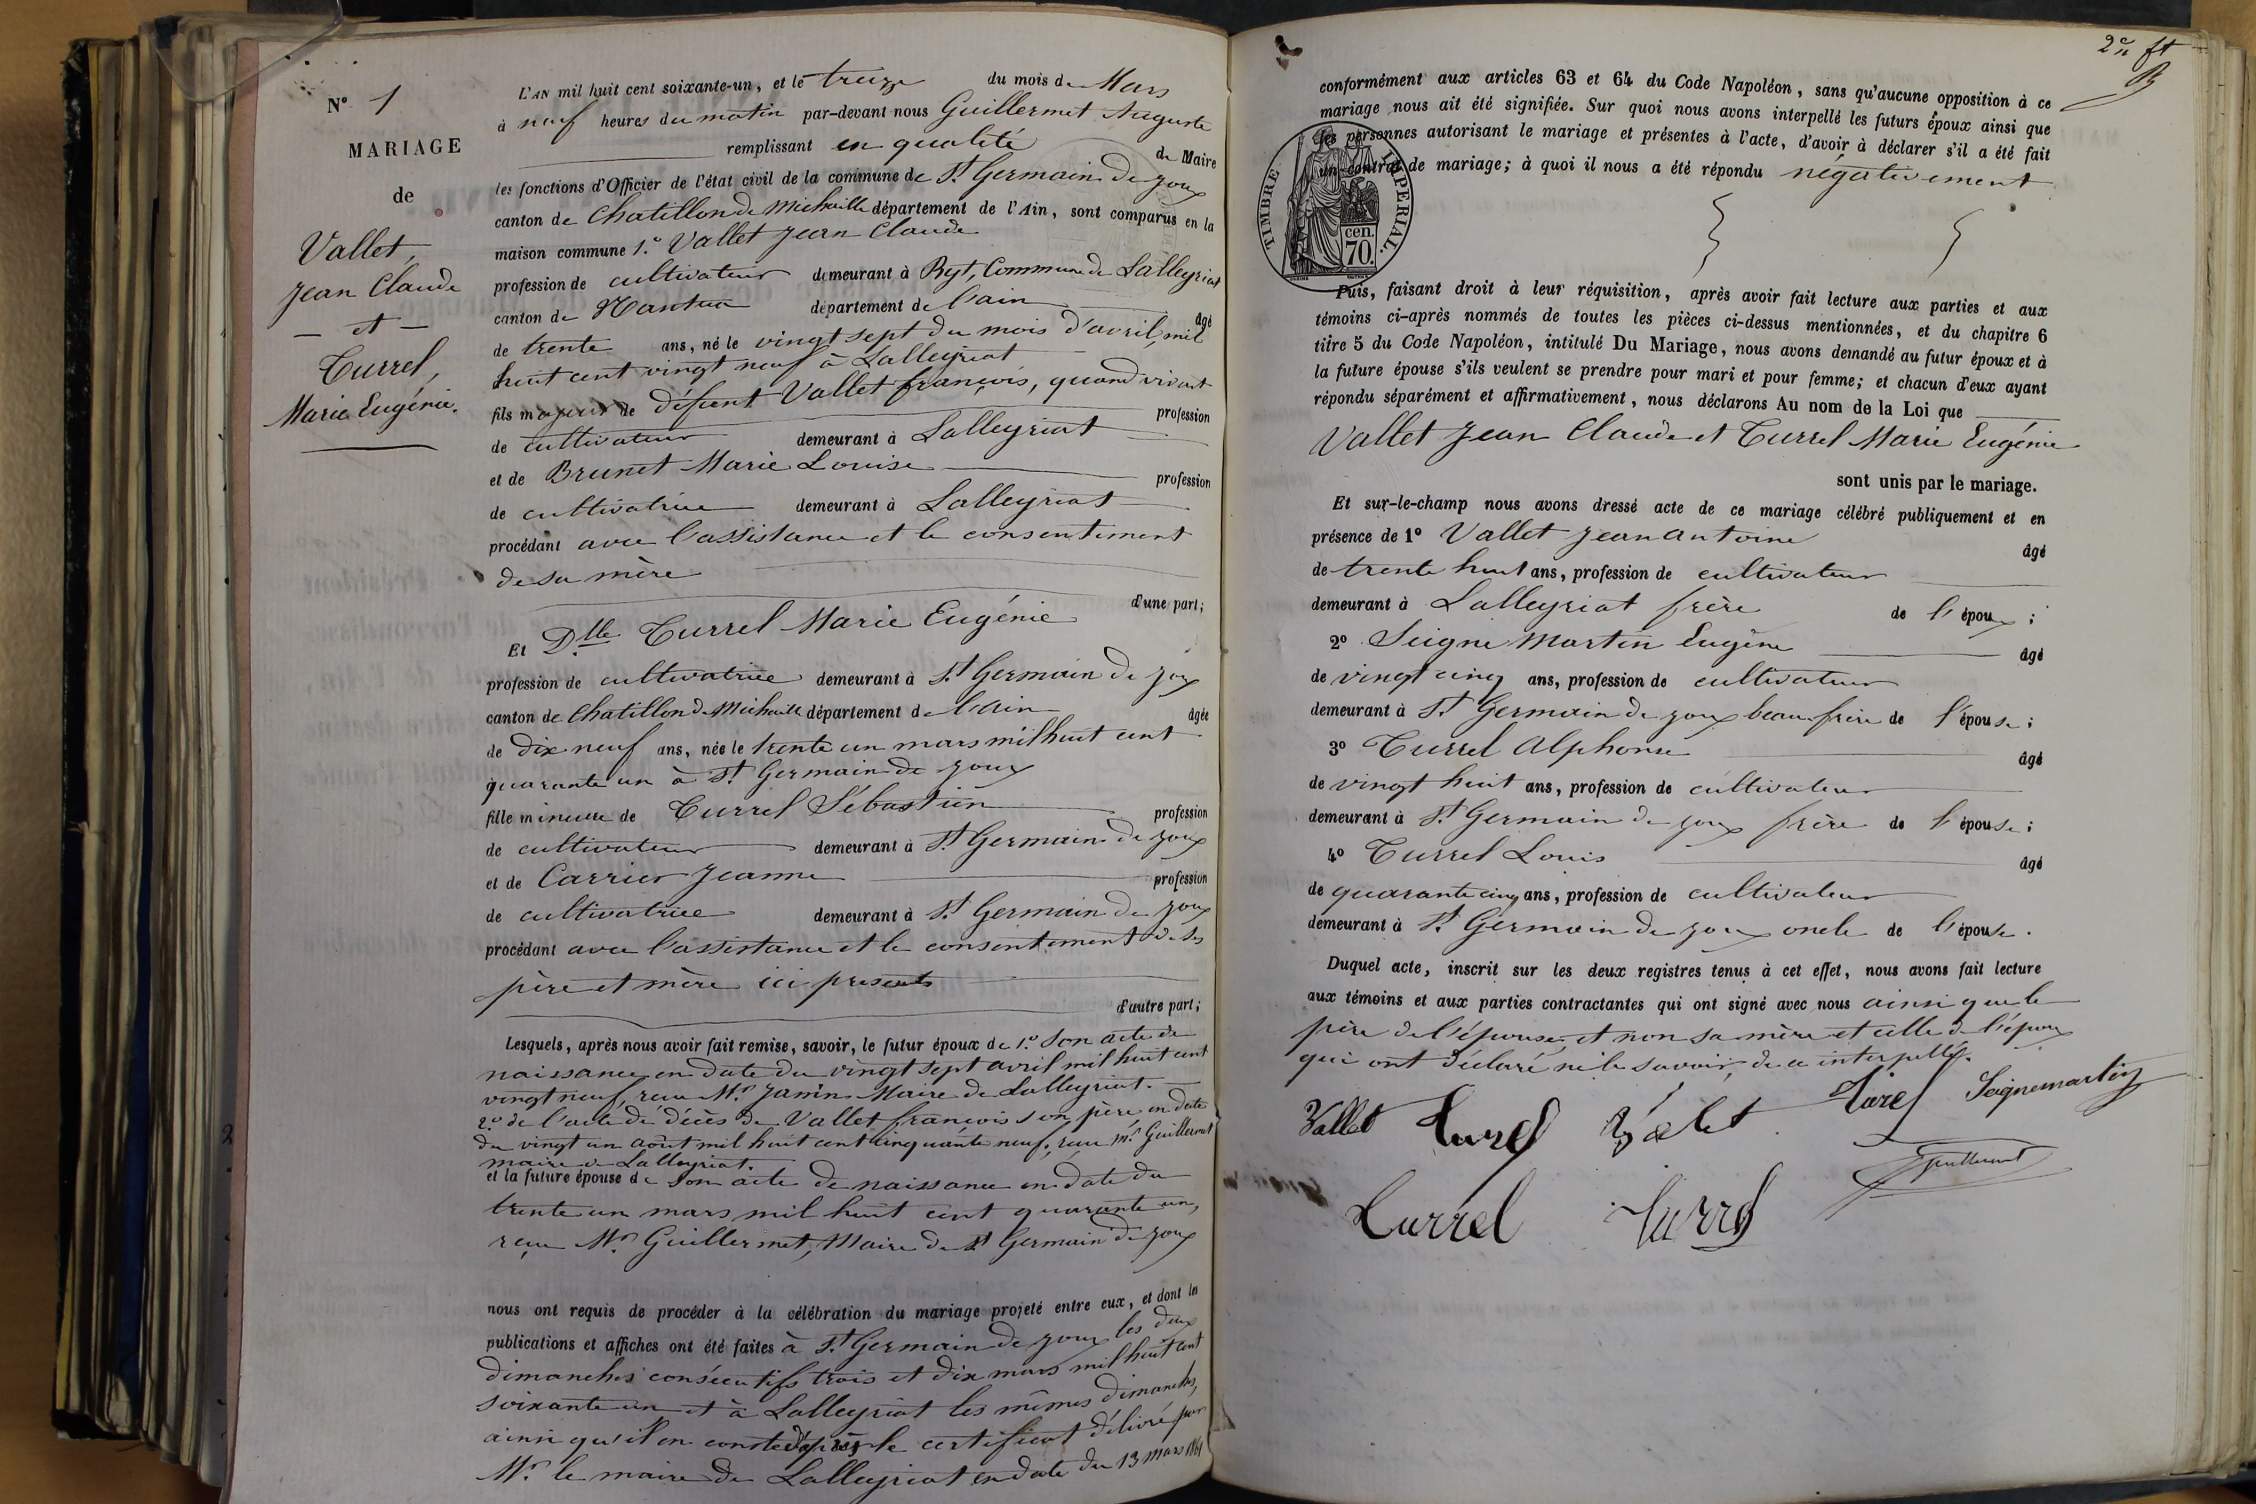 N° 1
MARIAGE
de
Vallet,
Jean Claude
— et —
Turrel,
Marie Eugénie.
L'AN mil huit cent soixante-un, et le treize du mois de Mars
à neuf heures du matin par-devant nous Guillermet Auguste
remplissant en qualité de Maire
les fonctions d'Officier de l'état civil de la commune de St Germain de joux
canton de Chatillon de Michaille département de l'Ain, sont comparus en la
maison commune 1.° Vallet Jean Claude
profession de cultivateur demeurant à Ryt, Commune de Lalleyriat
canton de Nantua département de l'ain âgé
de trente ans, né le vingt sept du mois d'avril mil
huit cent vingt neuf à Lalleyriat
fils majeur de défunt Vallet françois, quand vivant profession
de cultivateur demeurant à Lalleyriat
et de Brunet Marie Louise profession
de cultivatrice demeurant à Lalleyriat
procédant avec l'assistance et le consentement
de sa mère
d'une part;
Et Dlle Turrel Marie Eugénie
profession de cultivatrice demeurant à St Germain de joux
canton de Chatillon de Michaille département de l'Ain âgée
de dix neuf ans, née le trente un mars mil huit cent
quarante un à St Germain de joux
fille mineure de Turrel Sébastien profession
de cultivateur demeurant à St Germain de joux
et de Carrier Jeanne profession
de cultivatrice demeurant à St Germain de joux
procédant avec l'assistance et le consentement de ses
père et mère ici presents
d'autre part;
Lesquels, après nous avoir fait remise, savoir, le futur époux de 1.° Son acte de
naissance en date du vingt sept avril mil huit cent
vingt neuf, reçu Mr Janin Maire de Lalleyriat.
2.° de l'acte de décès de Vallet françois son père en date
du vingt un août mil huit cent cinquante neuf, reçu mr Guillermet
maire de Lalleyriat.
et la future épouse de son acte de naissance en date du
trente un mars mil huit cent quarante un,
reçu Mr Guillermet, Maire de St Germain de joux
nous ont requis de procéder à la célébration du mariage projeté entre eux, et dont les
publications et affiches ont été faites à St Germain de joux les deux
dimanches consécutifs trois et dix mars mil huit cent
soixante un et à Lalleyriat les mêmes dimanches,
ainsi qu'il en conste d'après le certificat délivré par
Mr le maire de Lalleyriat en date du 13 mars 1861
conformément aux articles 63 et 64 du Code Napoléon, sans qu'aucune opposition à ce
mariage nous ait été signifiée. Sur quoi nous avons interpellé les futurs époux ainsi que
les personnes autorisant le mariage et présentes à l'acte, d'avoir à déclarer s'il a été fait
un contrat de mariage; à quoi il nous a été répondu négativement
TIMBRE IMPERIAL.
cen.
70.
Puis, faisant droit à leur réquisition, après avoir fait lecture aux parties et aux
témoins ci-après nommés de toutes les pièces ci-dessus mentionnées, et du chapitre 6
titre 5 du Code Napoléon, intitulé Du Mariage, nous avons demandé au futur époux et à
la future épouse s'ils veulent se prendre pour mari et pour femme; et chacun d'eux ayant
répondu séparément et affirmativement, nous déclarons Au nom de la Loi que
Vallet Jean Claude et Turrel Marie Eugénie
sont unis par le mariage.
Et sur-le-champ nous avons dressé acte de ce mariage célébré publiquement et en
présence de 1° Vallet Jean Antoine âgé
de trente huit ans, profession de cultivateur
demeurant à Lalleyriat frère de l'époux;
2° Seigne Martin Eugène âgé
de vingt cinq ans, profession de cultivateur
demeurant à St Germain de joux beau frère de l'épouse;
3° Turrel Alphonse âgé
de vingt huit ans, profession de cultivateur
demeurant à St Germain de joux frère de l'épouse;
4° Turrel Louis âgé
de quarante cinq ans, profession de cultivateur
demeurant à St Germain de joux oncle de l'épouse.
Duquel acte, inscrit sur les deux registres tenus à cet effet, nous avons fait lecture
aux témoins et aux parties contractantes qui ont signé avec nous ainsi que le
père de l'épouse, et non sa mère et celle de l'époux
qui ont déclaré ne le savoir, de ce interpellé.
Vallet Turel Valet Turel Seignemartin
Guillermet
Turrel Turrel